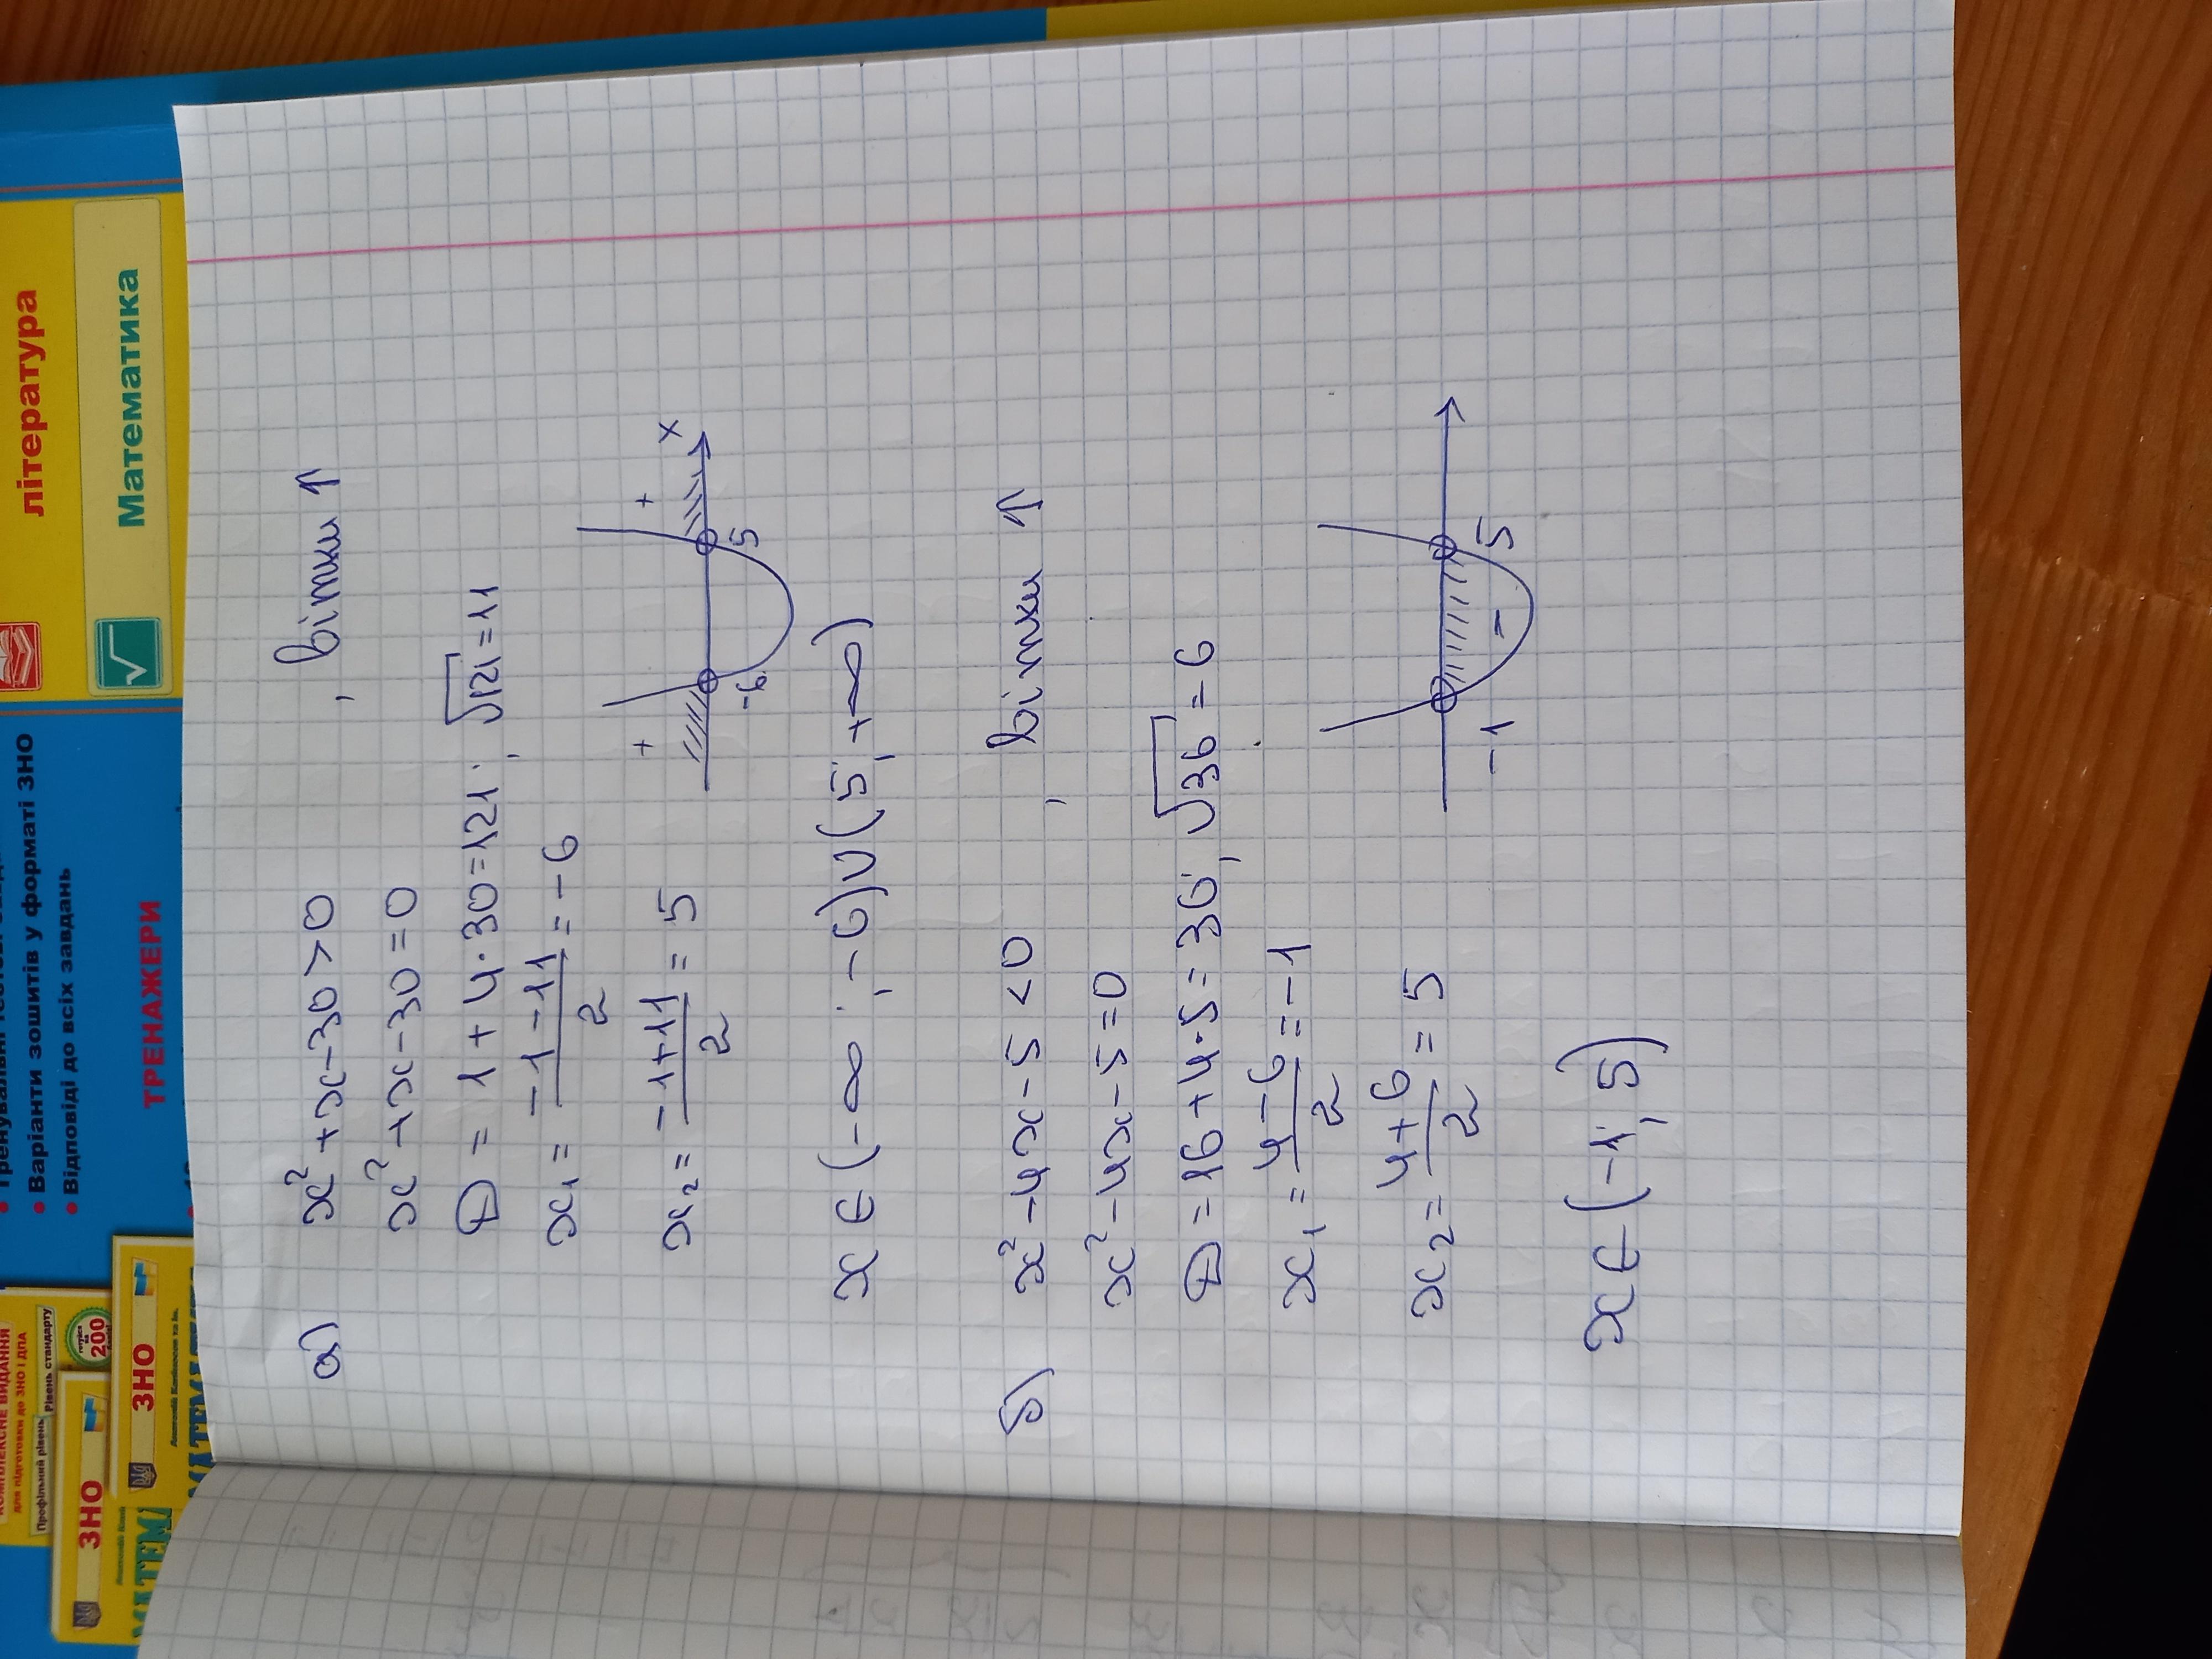 а) x² + x - 30 > 0 , вітки ↑
x² + x - 30 = 0
D = 1 + 4 · 30 = 121 ; √121 = 11
x₁ = (-1 - 11)/2 = -6
x₂ = (-1 + 11)/2 = 5
+ + x
-6 5
x ∈ (-∞ ; -6) ∪ (5 ; +∞)
б) x² - 4x - 5 < 0 , вітки ↑
x² - 4x - 5 = 0
D = 16 + 4 · 5 = 36 ; √36 = 6
x₁ = (4 - 6)/2 = -1
x₂ = (4 + 6)/2 = 5
-1 - 5
x ∈ (-1 ; 5)
література
Математика
• Варіанти зошитів у форматі ЗНО
• Відповіді до всіх завдань
ТРЕНАЖЕРИ
КОМПЛЕКСНЕ ВИДАННЯ
для підготовки до ЗНО і ДПА
Профільний рівень
Рівень стандарту
200
ЗНО
ЗНО